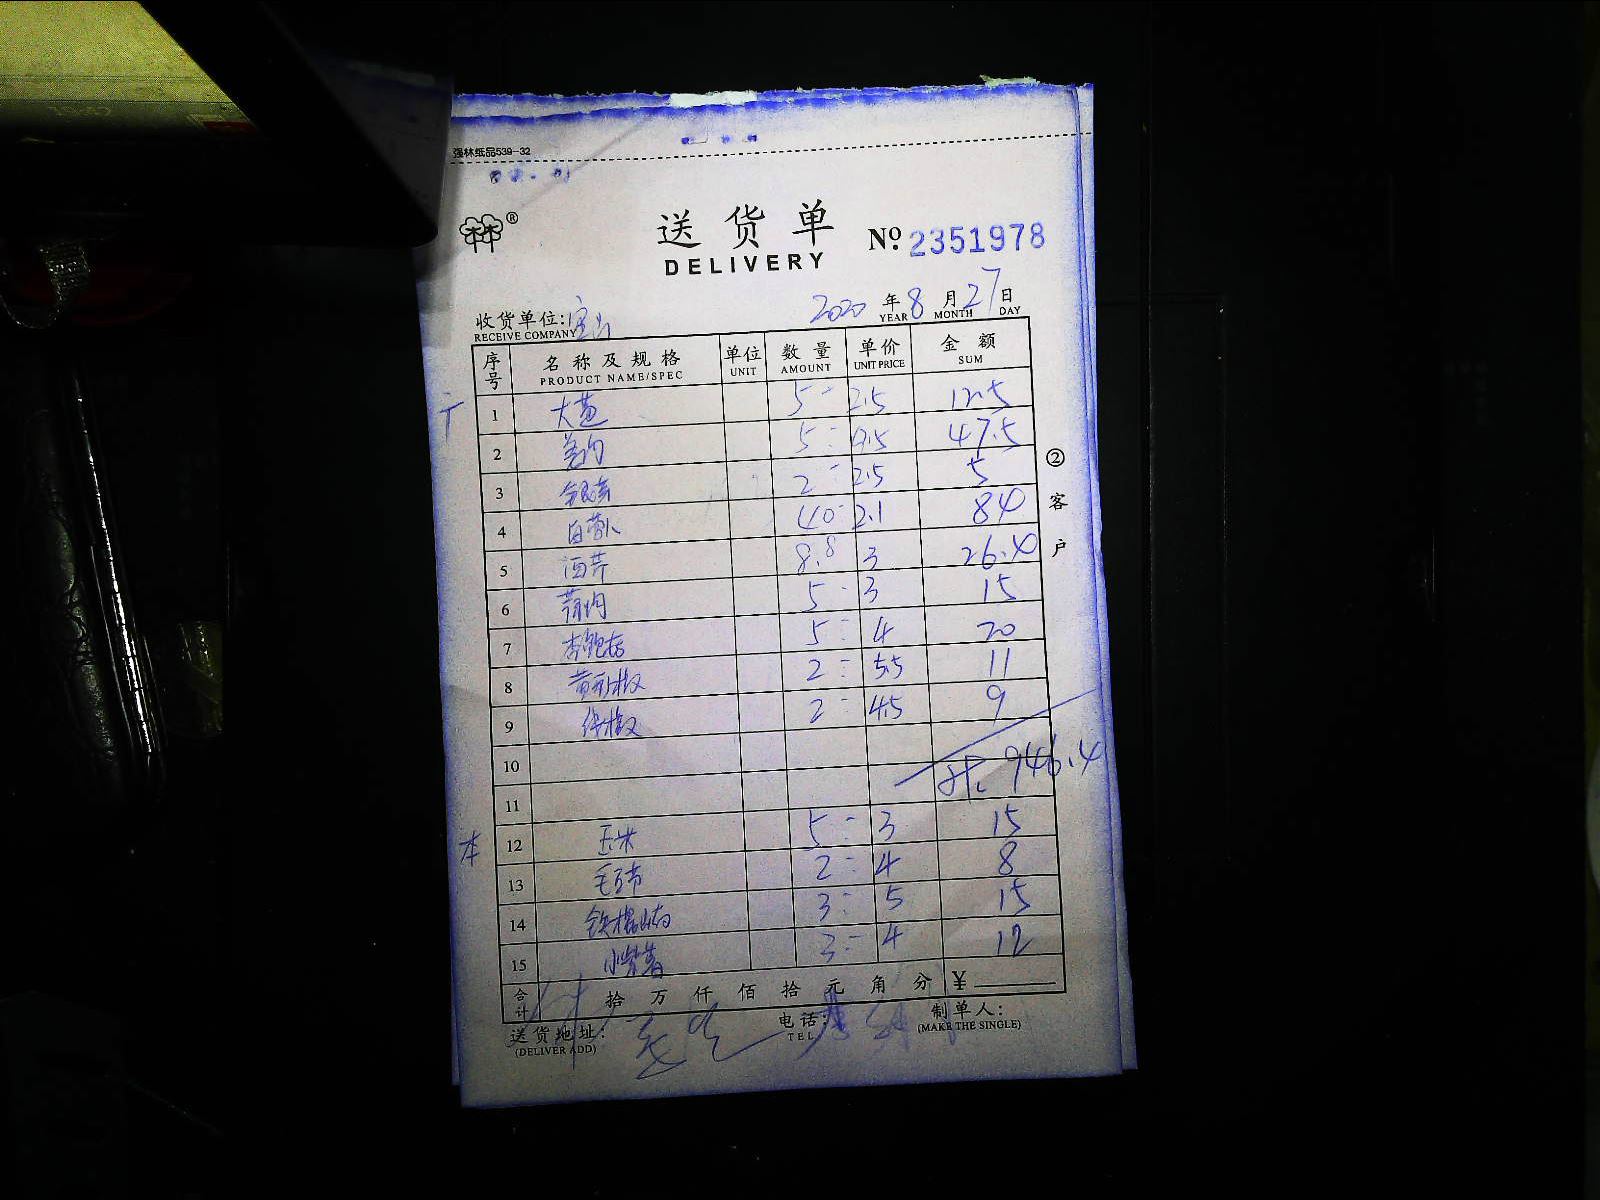 强林纸品539-32
®
送货单
DELIVERY
№ 2351978
收货单位: 宝山
RECEIVE COMPANY
2020 年 8 月 27 日
YEAR MONTH DAY
序号 名称及规格 单位 数量 单价 金额
PRODUCT NAME/SPEC UNIT AMOUNT UNIT PRICE SUM
1 大葱 5 - 2.5 12.5
2 姜肉 5 - 9.5 47.5
3 2 - 2.5 5
4 40 - 2.1 84
5 西芹 8.8 3 26.4
6 5 - 3 15
7 杏鲍菇 5 - 4 20
8 黄彩椒 2 - 5.5 11
9 2 - 4.5 9
10 946.4
11
本 12 玉米 5 - 3 15
13 毛豆节 2 - 4 8
14 铁棍山药 3 - 5 15
15 小紫薯 3 - 4 12
合计 拾 万 仟 佰 拾 元 角 分 ¥
送货地址:
(DELIVER ADD)
电话:
TEL
制单人:
(MAKE THE SINGLE)
②客户